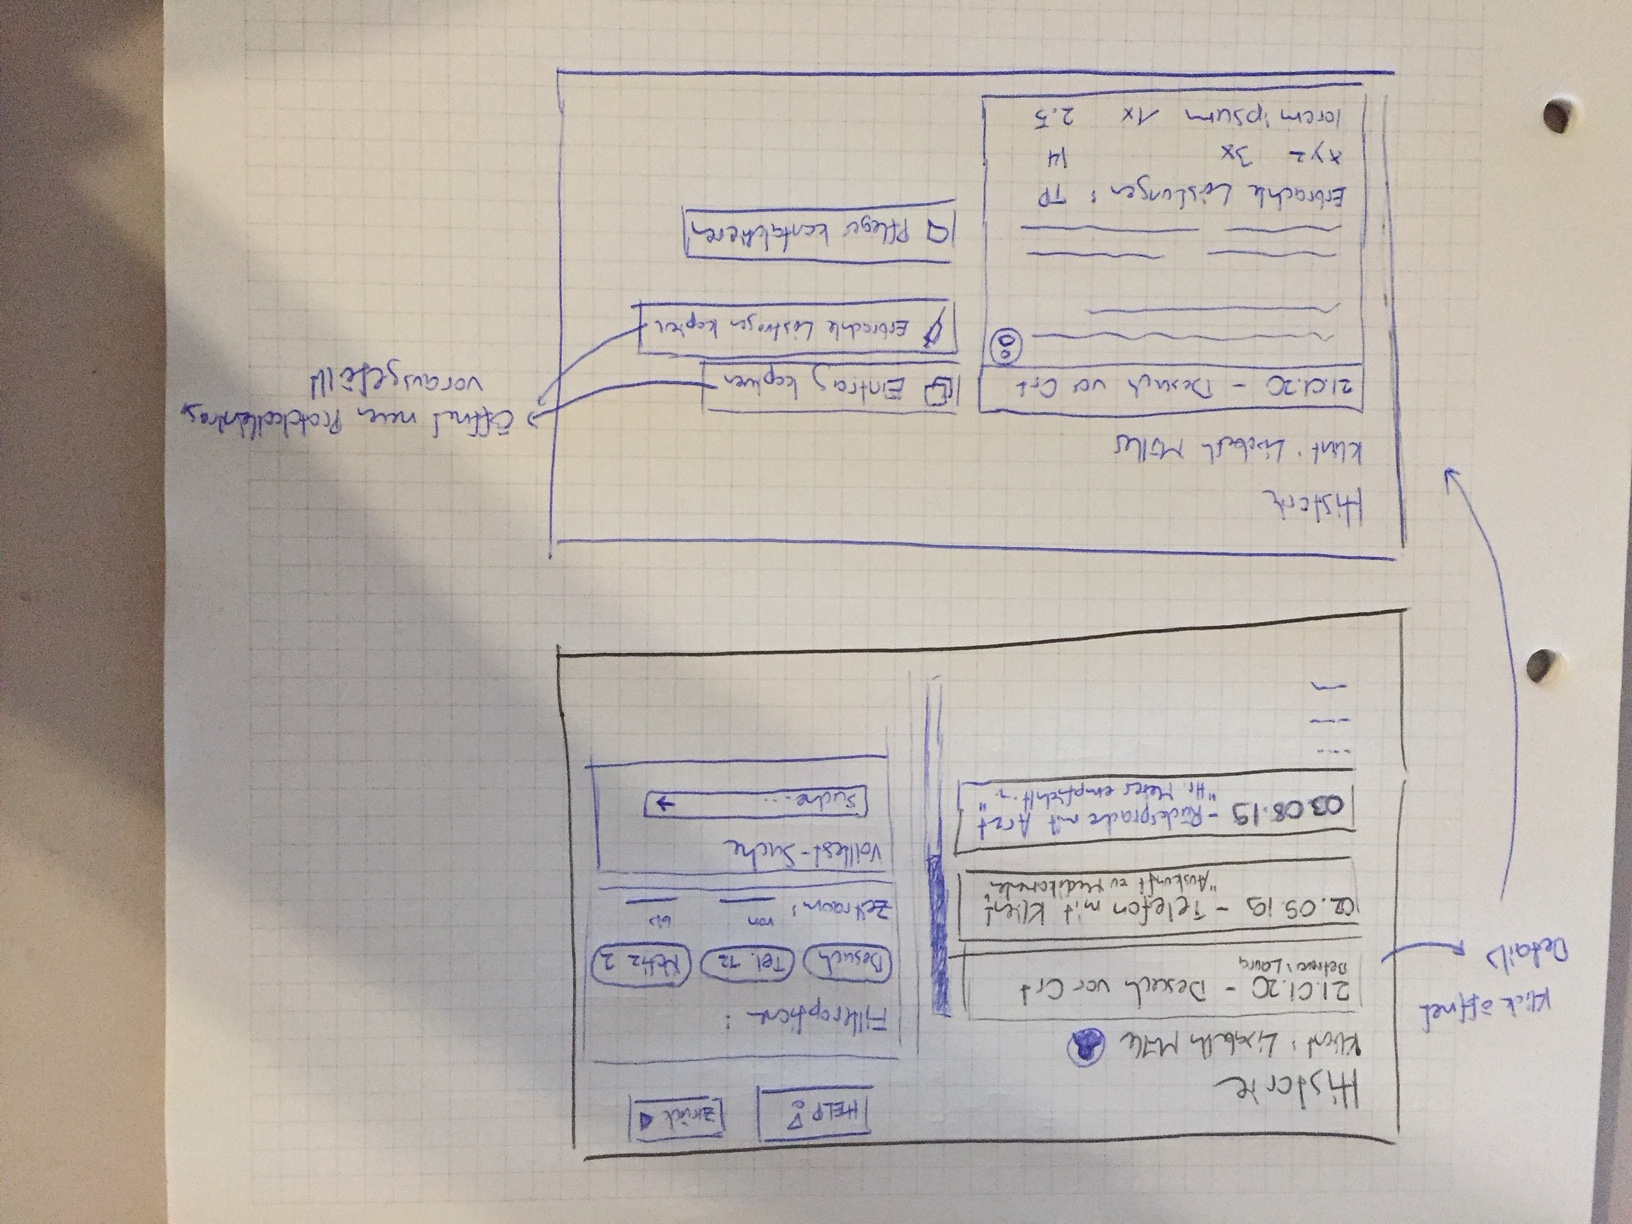 HELP!
Zurück
Historie
Klient: Lisabeth Müller
21.01.20 - Besuch vor Ort
Betreuer: Laura
02.09.19 - Telefon mit Klient
"Auskunft zu Medikamenten"
03.08.19 - Rücksprache mit Arzt
"Hr. Meier empfiehlt..."
Filteroptionen:
Besuch
Tel. 12
Notiz 2
Zeitraum: von bis
Volltext-Suche
Suche... →
Klick öffnet
Details
Historie
Klient: Lisabeth Müller
21.01.20 - Besuch vor Ort
Erbrachte Leistungen: TP
xyz 3x 14
lorem ipsum 1x 2.5
Eintrag kopieren
Erbrachte Leistungen kopieren
Pfleger kontaktieren
Öffnet neuen Protokolleintrag
vorausgefüllt